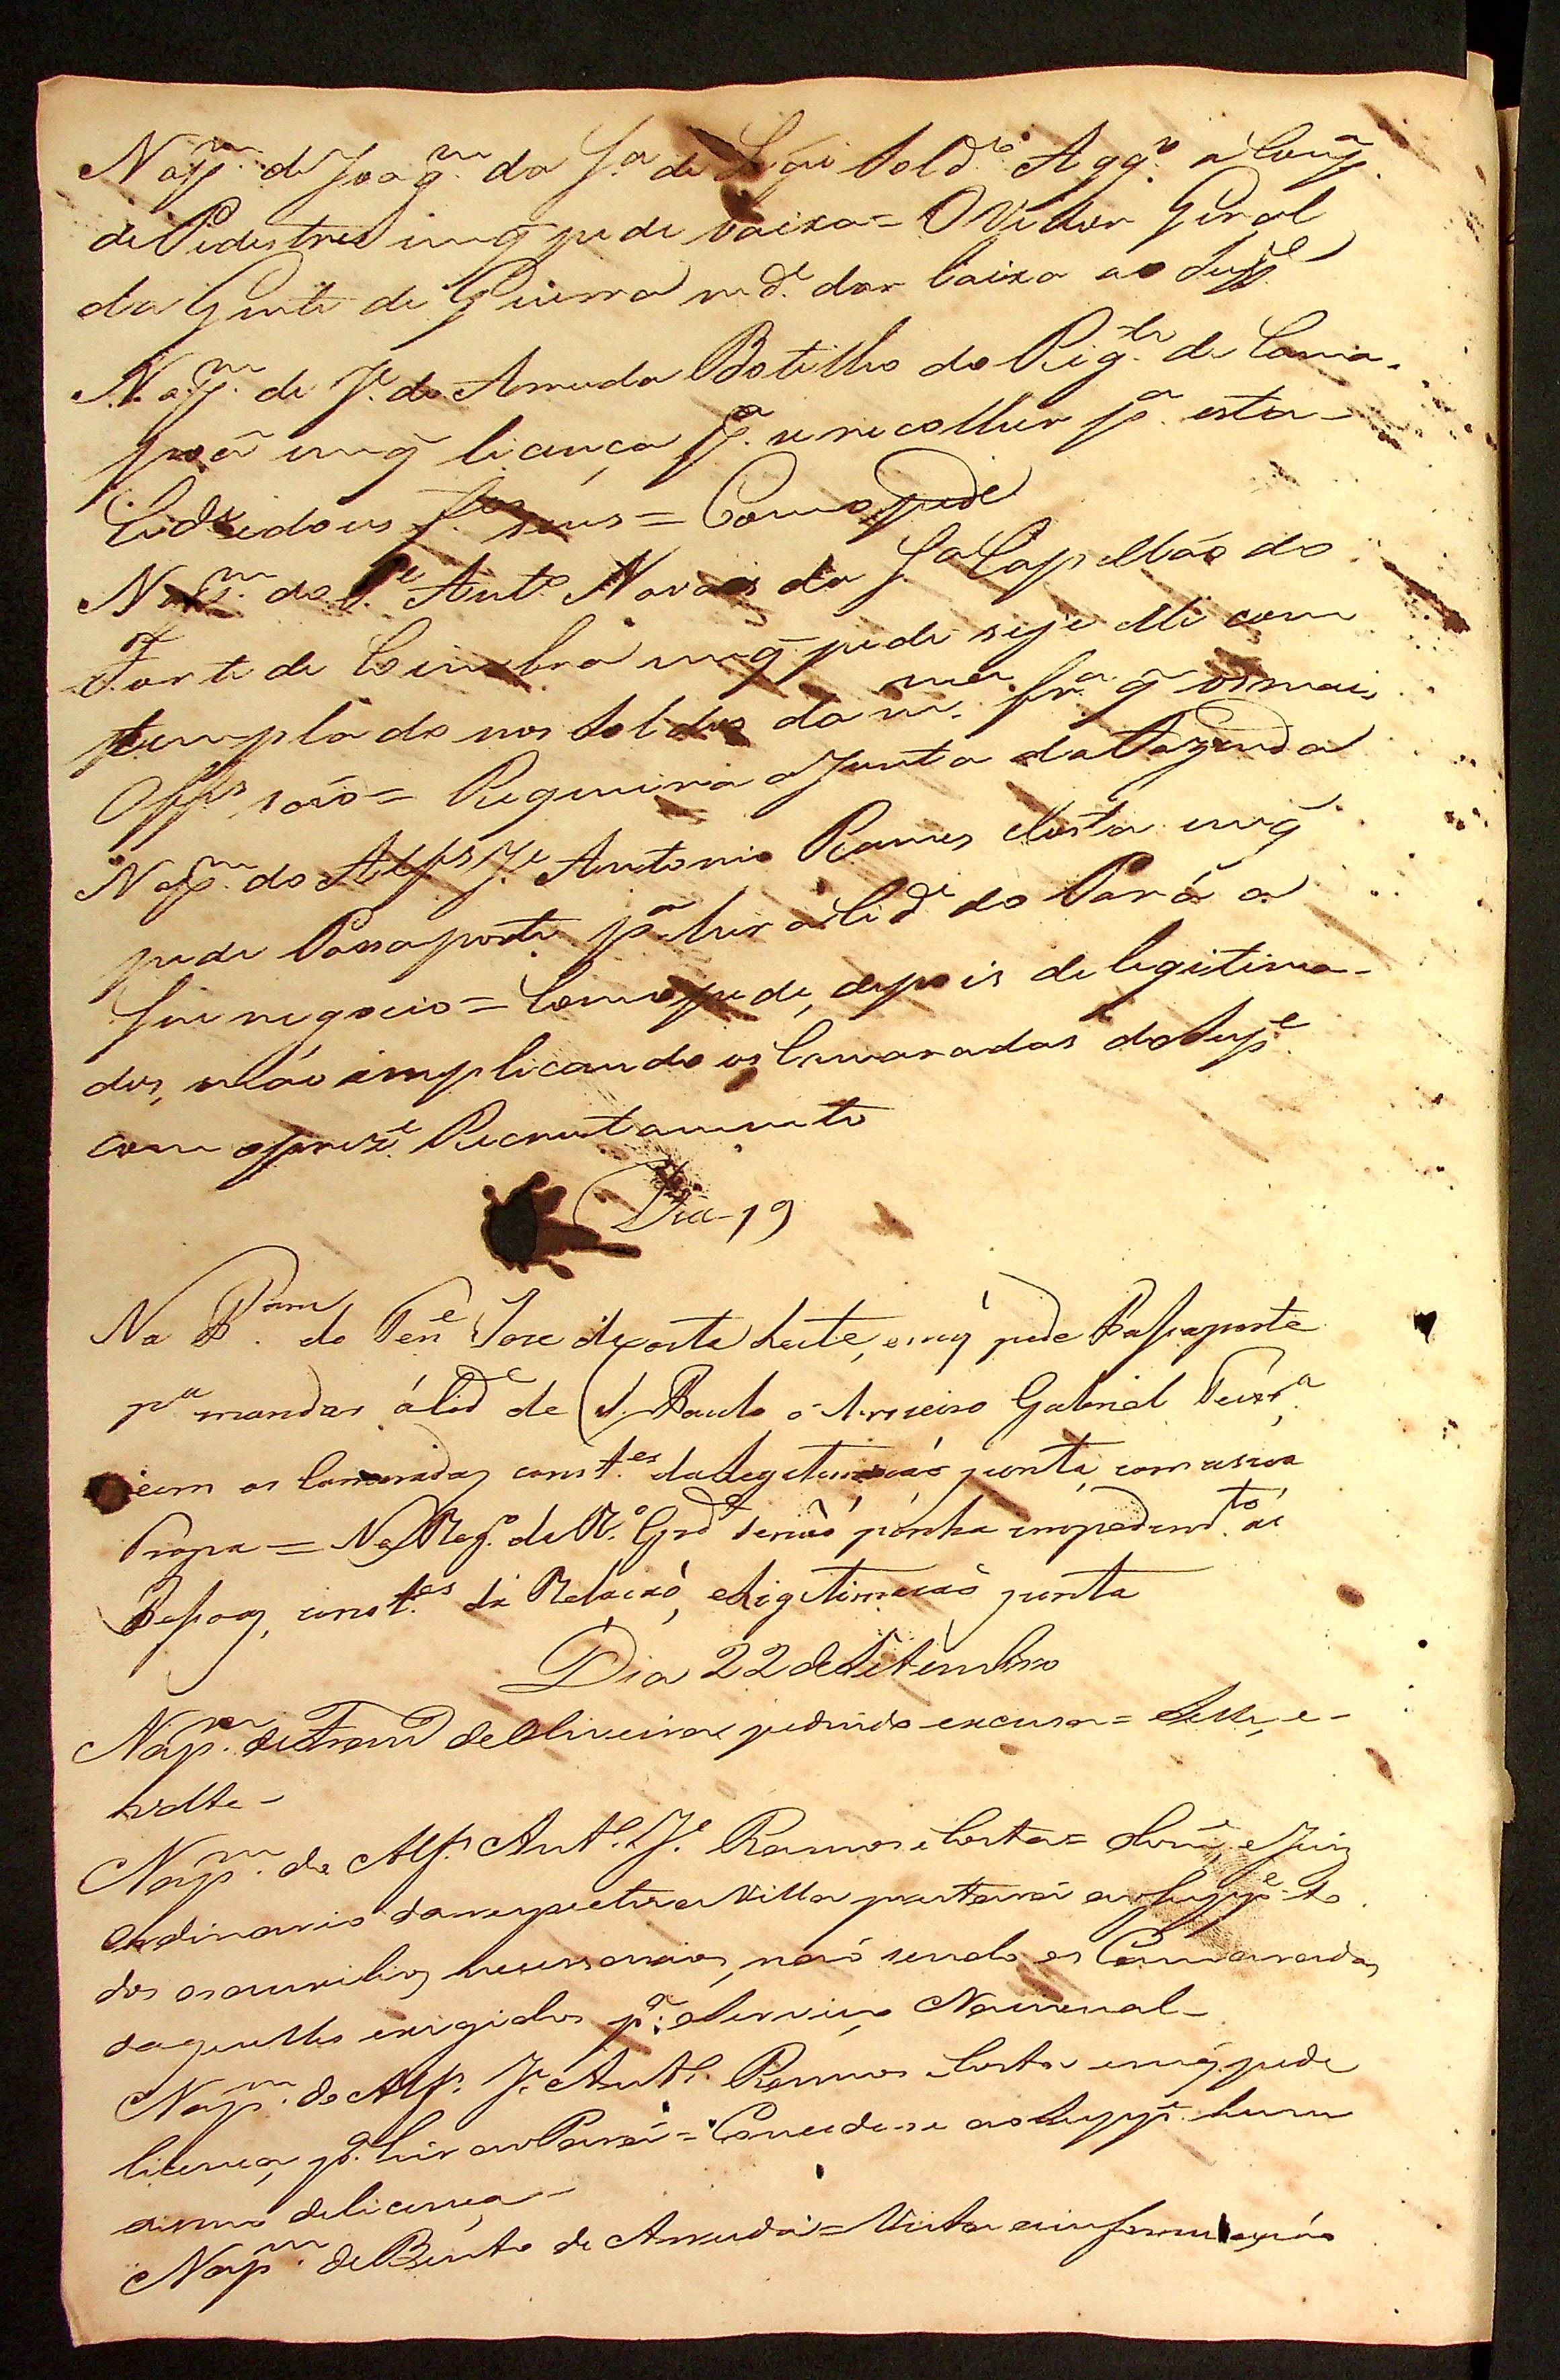 Nap.m de Joaq.m da S.a de Sold.o Agg.o a Comp.
de Pedestres em q̃ pede baixa = O Vedor Geral
da Gente de Guerra m.de dar baixa ao Supp.e
Na p.m de J.e de Arruda Botelho do Reg.to de Cama-
poã em q̃ licença p.a se recolher p.a esta
Cid.e e dous seus = Como pede
Na p.m do P.e Ant.o Novaes da S.a Capellão do
Forte de Coimbra em q̃ pede seje elle com
templado nos Soldos da m.ma fr.a q̃ os mais
Off.es são = Requeira a Junta da Fazenda
Na p.m do Alf.s J.e Antonio Ramos e Costa em q̃
pede Passaporte p.a hir a Cid.e do Pará a
seu negocio = Como pede, depois de legitima-
dos, não implicando os Camaradas do Sup.e
com o prez.e Recrutamento
Dia 19
Na P.am do Ten.e Jose da Costa Leite, em q̃ pede Passaporte
p.a mandar á Cid.e de S. Paulo o Arrieiro Gabriel
com os Camaradas const.es da Legitimação junta, com a sua
Tropa = No Reg.o do R.o Gr.de senaõ ponha impedim.to ás
Pessoas, const.es da Relaçaõ, e Ligitimação junta
Dia 22 de Setembro
Na p.m de de Oliveira pedindo excusa = Selle, e
volte -
Na p.m do Alf.s Ant.o J.e Ramos e Costa = O Com.e, e Juiz
ordinario da respectiva Villa prestará ao Supp.e to
dos os auxilios necessarios, naõ sendo os Camaradas
daquelles exigidos p.a o Serviço Nacional -
Na p.m do Alf.s J.e Ant.o Ramos e Costa em q̃ pede
licença p.a hir ao Pará = Concede-se ao Supp.e hum
anno de licença -
Na p.m de Bento de Arruda = Vista a informação